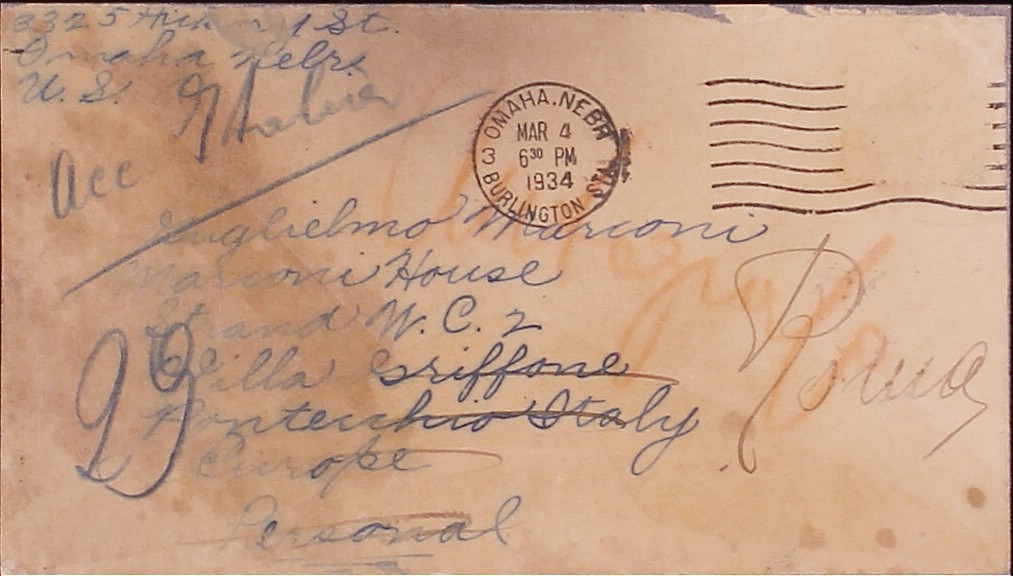 3325 St.
Omaha Nebr.
U. S.
acc
OMAHA, NEBR
MAR 4
6 30 PM
1934
3 BURLINGTON STA.
Guglielmo Marconi
Marconi House
Strand W. C. 2
Villa Griffone
Pontecchio Italy
Europe
Personal
Roma